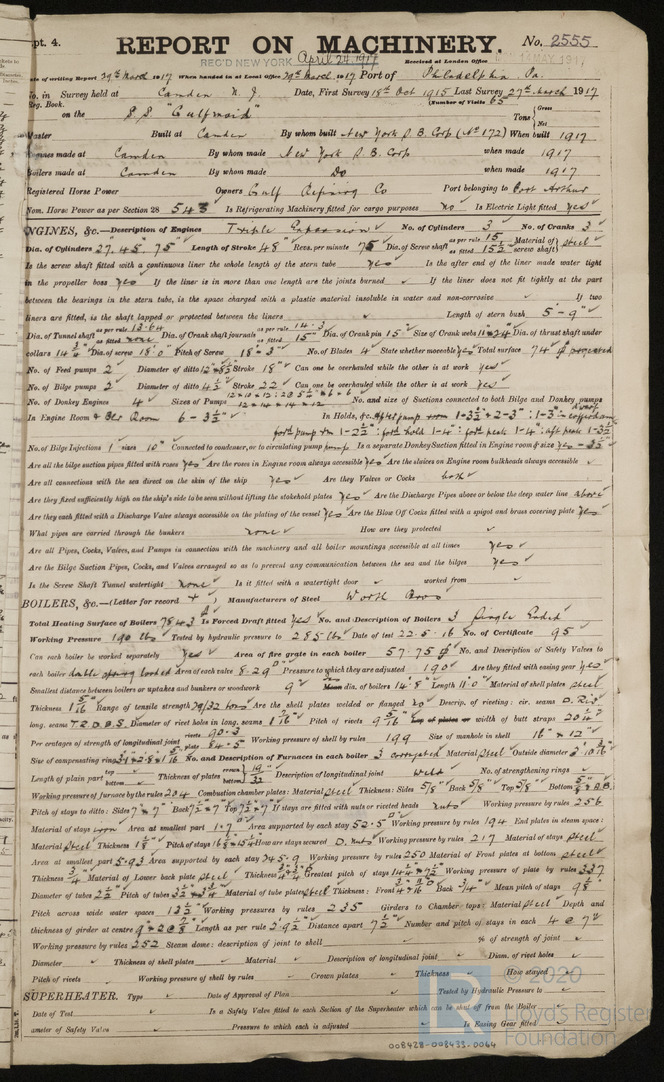 pt. 4.
REPORT ON MACHINERY. No. 2555
REC'D NEW YORK April 24, 1917 Received at London Office 14 MAY 1917
of writing Report 29th March 1917 When handed in at Local Office 29th March 1917 Port of Philadelphia Pa.
No. in Survey held at Camden N. J. Date, First Survey 18th Oct 1915 Last Survey 27th March 1917
Reg. Book. (Number of Visits 65
on the S.S. "Gulfmaid" Tons Gross Net
Master Built at Camden By whom built New York S. B. Corp (No 172) When built 1917
Engines made at Camden By whom made New York S. B. Corp when made 1917
Boilers made at Camden By whom made Do when made 1917
Registered Horse Power Owners Gulf Refining Co Port belonging to Port Arthur
Nom. Horse Power as per Section 28 543 Is Refrigerating Machinery fitted for cargo purposes no Is Electric Light fitted yes
NGINES, &c.—Description of Engines Triple Expansion No. of Cylinders 3 No. of Cranks 3
Dia. of Cylinders 27. 45. 75" Length of Stroke 48" Revs. per minute 75 Dia. of Screw shaft as per rule 15 as fitted 15½" Material of screw shaft Steel
Is the screw shaft fitted with a continuous liner the whole length of the stern tube yes Is the after end of the liner made water tight
in the propeller boss yes If the liner is in more than one length are the joints burned If the liner does not fit tightly at the part
between the bearings in the stern tube, is the space charged with a plastic material insoluble in water and non-corrosive If two
liners are fitted, is the shaft lapped or protected between the liners Length of stern bush 5'-9"
Dia. of Tunnel shaft as per rule 13.64 as fitted none Dia. of Crank shaft journals as per rule 14.3 as fitted 15" Dia. of Crank pin 15" Size of Crank webs Dia. of thrust shaft under
collars Dia. of screw 18'.0" Pitch of Screw 18'-3" No. of Blades 4 State whether moveable yes Total surface 74
No. of Feed pumps 2 Diameter of ditto Stroke 18" Can one be overhauled while the other is at work yes
No. of Bilge pumps 2 Diameter of ditto 4½ Stroke 22 Can one be overhauled while the other is at work yes
No. of Donkey Engines 4 Sizes of Pumps No. and size of Suctions connected to both Bilge and Donkey pumps
In Engine Room & Blr Room 6 - 3½" In Holds, &c.
No. of Bilge Injections 1 sizes 10" Connected to condenser, or to circulating pump pump Is a separate Donkey Suction fitted in Engine room & size yes - 3½
Are all the bilge suction pipes fitted with roses yes Are the roses in Engine room always accessible yes Are the sluices on Engine room bulkheads always accessible
Are all connections with the sea direct on the skin of the ship yes Are they Valves or Cocks both
Are they fixed sufficiently high on the ship's side to be seen without lifting the stokehold plates yes Are the Discharge Pipes above or below the deep water line above
Are they each fitted with a Discharge Valve always accessible on the plating of the vessel yes Are the Blow Off Cocks fitted with a spigot and brass covering plate yes
What pipes are carried through the bunkers none How are they protected
Are all Pipes, Cocks, Valves, and Pumps in connection with the machinery and all boiler mountings accessible at all times yes
Are the Bilge Suction Pipes, Cocks, and Valves arranged so as to prevent any communication between the sea and the bilges yes
Is the Screw Shaft Tunnel watertight none Is it fitted with a watertight door worked from
BOILERS, &c.—(Letter for record ) Manufacturers of Steel Worth Bros
Total Heating Surface of Boilers 7843 Is Forced Draft fitted yes No. and Description of Boilers 3 Single Ended
Working Pressure 190 lbs Tested by hydraulic pressure to 285 lbs Date of test 22.5.16 No. of Certificate 95
Can each boiler be worked separately yes Area of fire grate in each boiler 57.75 No. and Description of Safety Valves to
each boiler double spring loaded Area of each valve 8.29 Pressure to which they are adjusted 190 Are they fitted with easing gear yes
Smallest distance between boilers or uptakes and bunkers or woodwork 9" dia. of boilers 14'.8" Length 11'.0" Material of shell plates Steel
Thickness Range of tensile strength Are the shell plates welded or flanged no Descrip. of riveting: cir. seams D.Riv
long. seams T.R.D.B.S. Diameter of rivet holes in long. seams Pitch of rivets width of butt straps
Per centages of strength of longitudinal joint rivets 90.3 plate 84.5 Working pressure of shell by rules 199 Size of manhole in shell 16" x 12"
Size of compensating ring No. and Description of Furnaces in each boiler 3 corrugated Material Steel Outside diameter
Length of plain part top bottom Thickness of plates crown bottom 19/32 Description of longitudinal joint weld No. of strengthening rings
Working pressure of furnace by the rules 204 Combustion chamber plates: Material Steel Thickness: Sides 5/8 Back 5/8 Top 5/8 Bottom
Pitch of stays to ditto: Sides 7" x 7" Back 7½ x 7" Top 7½ x 7" If stays are fitted with nuts or riveted heads nuts Working pressure by rules 256
Material of stays iron Area at smallest part 1.7 Area supported by each stay 52.5 Working pressure by rules 194 End plates in steam space:
Material Steel Thickness Pitch of stays How are stays secured D. nuts Working pressure by rules 217 Material of stays Steel
Area at smallest part 5.93 Area supported by each stay 245.9 Working pressure by rules 250 Material of Front plates at bottom steel
Thickness 3/4 Material of Lower back plate Steel Thickness Greatest pitch of stays Working pressure of plate by rules 337
Diameter of tubes 2½" Pitch of tubes Material of tube plates Steel Thickness: Front Back 3/4 Mean pitch of stays
Pitch across wide water spaces 13½ Working pressures by rules 235 Girders to Chamber tops: Material Steel Depth and
thickness of girder at centre Length as per rule Distance apart 7½" Number and pitch of stays in each 4 @ 7"
Working pressure by rules 252 Steam dome: description of joint to shell % of strength of joint
Diameter Thickness of shell plates Material Description of longitudinal joint Diam. of rivet holes
Pitch of rivets Working pressure of shell by rules Crown plates Thickness How stayed
SUPERHEATER. Type Date of Approval of Plan Tested by Hydraulic Pressure to
Date of Test Is a Safety Valve fitted to each Section of the Superheater which can be shut off from the Boiler
ameter of Safety Valve Pressure to which each is adjusted Is Easing Gear fitted
© 2020
Lloyd's Register
Foundation
008428-008433-0064